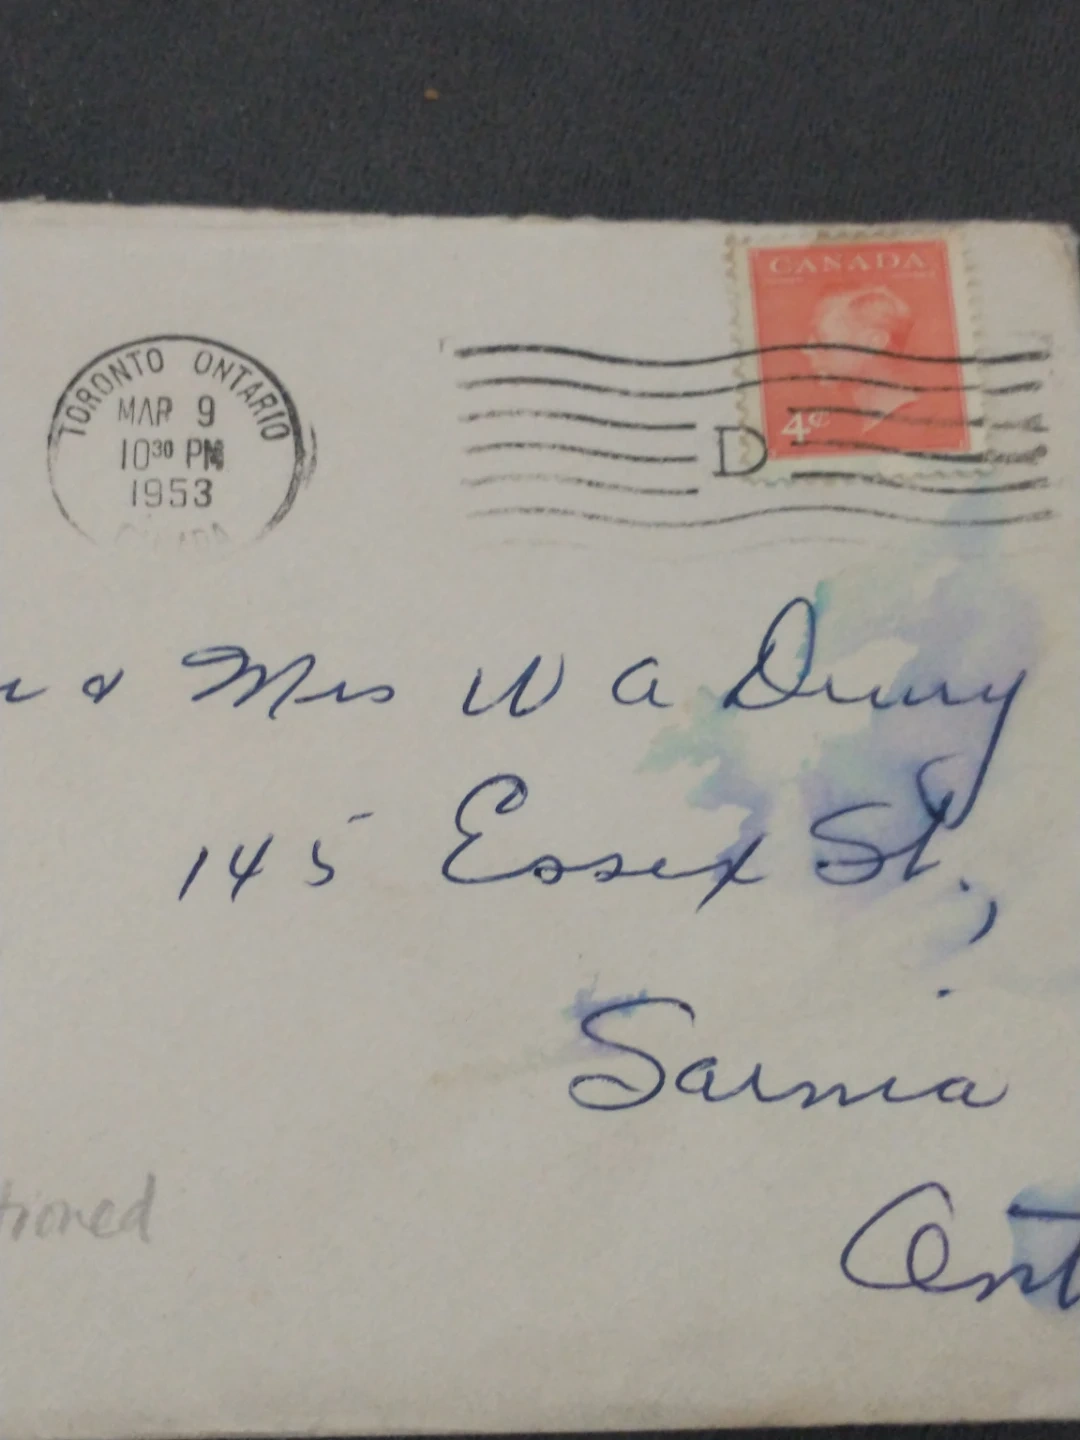 CANADA
4¢
TORONTO ONTARIO
MAR 9
10³⁰ PM
1953
CANADA
D
& Mrs W A Drury
145 Essex St.,
Sarnia
Ont
tioned